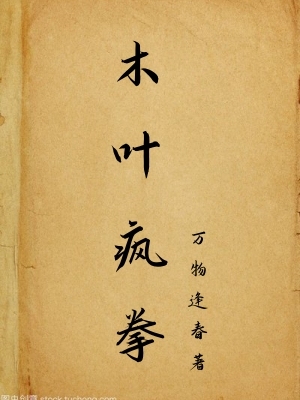 木叶疯拳
万物逢春著
图虫创意 stock.tuchong.com